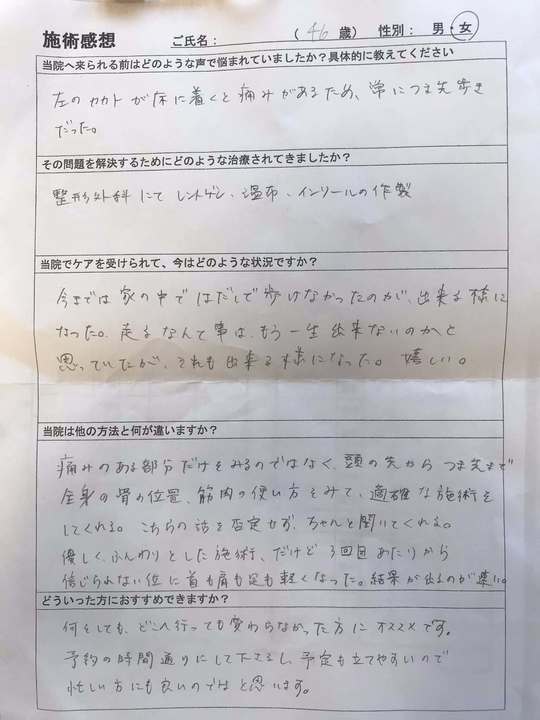 施術感想 ご氏名: (46歳) 性別: 男・女
当院へ来られる前はどのような声で悩まれていましたか?具体的に教えてください
左のカカトが床に着くと痛みがあるため、常につま先歩き
だった。
その問題を解決するためにどのような治療されてきましたか?
整形外科にてレントゲン、湿布、インソールの作製
当院でケアを受けられて、今はどのような状況ですか?
今までは家の中ではだしで歩けなかったのが、出来る様に
なった。走るなんて事は、もう一生出来ないのかと
思っていたが、それも出来る様になった。嬉しい。
当院は他の方法と何が違いますか?
痛みのある部分だけをみるのではなく、頭の先からつま先まで
全身の骨の位置、筋肉の使い方をみて、適確な施術を
してくれる。こちらの話を否定せず、ちゃんと聞いてくれる。
優しく、ふんわりとした施術、だけど3回目あたりから
信じられない位に首も肩も足も軽くなった。結果が出るのが速い。
どういった方におすすめできますか?
何をしても、どこへ行っても変わらなかった方にオススメです。
予約の時間通りにして下さるし、予定も立てやすいので
忙しい方にも良いのではと思います。